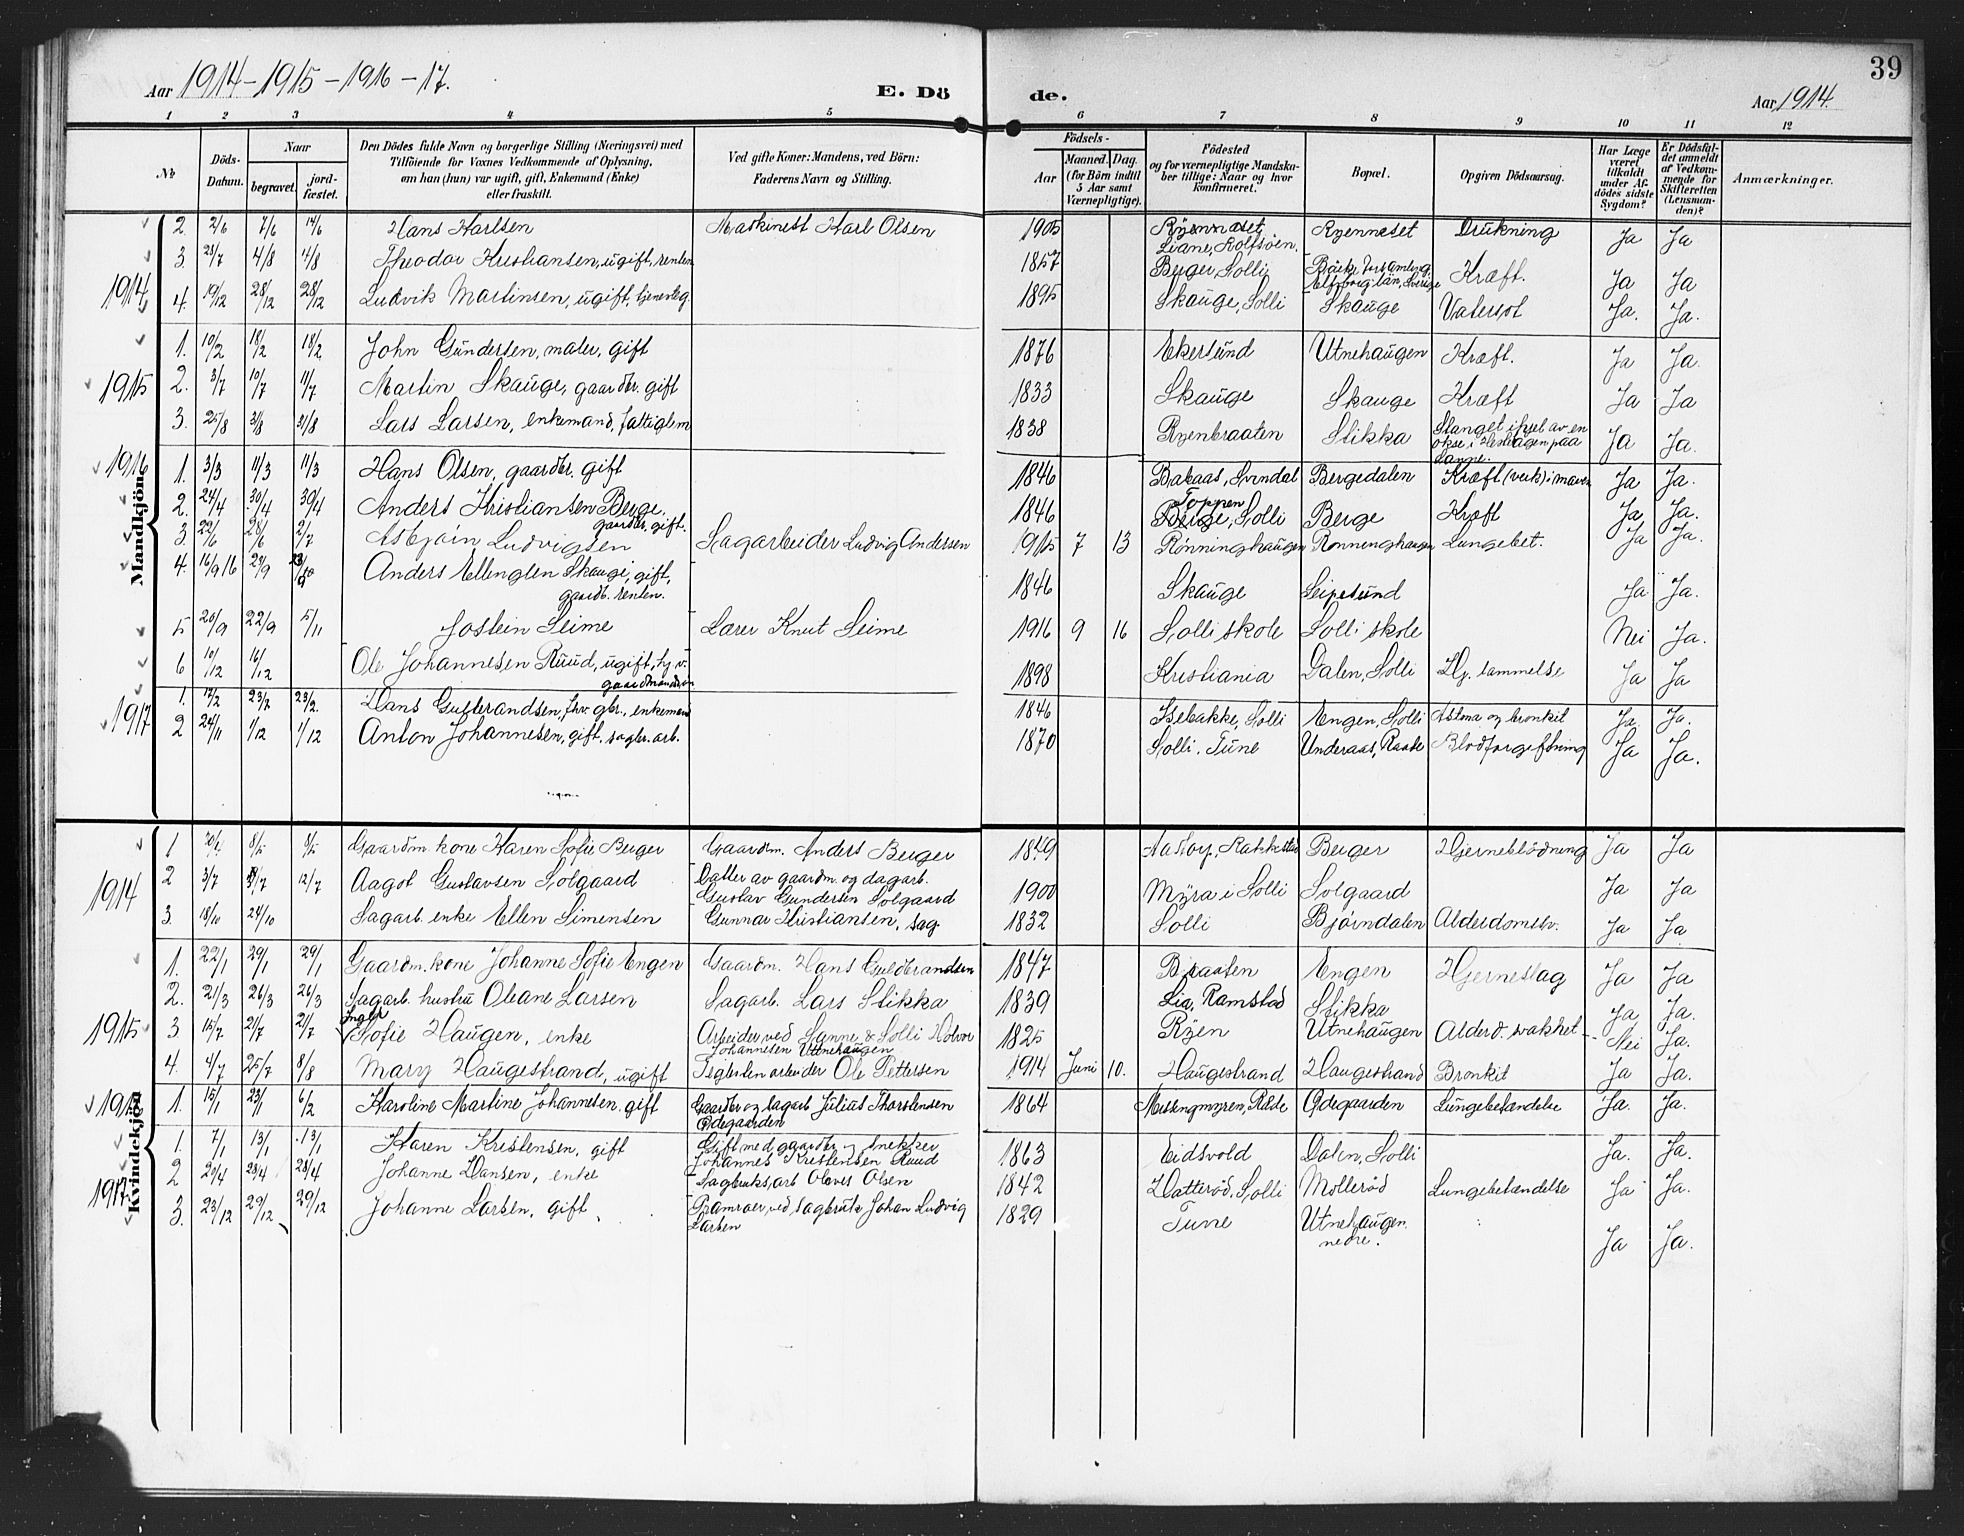 39
Aar 1914-1915-1916-17.
E. Dö
de.
Aar 1914.
1 2 3 4 5 6 7 8 9 10 11 12
№
Döds-Datum.
Naar
begravet.
jord-fæstet.
Den Dödes fulde Navn og borgerlige Stilling (Næringsvei) med
Tilföiende for Voxnes Vedkommende af Oplysning,
om han (hun) var ugift, gift, Enkemand (Enke)
eller fraskilt.
Ved gifte Koner: Mandens, ved Börn:
Faderens Navn og Stilling.
Födsels-
Aar
Maaned. Dag.
(for Börn indtil
5 Aar samt
Værnepligtige).
Födested
og for værnepligtige Mandska-
ber tillige: Naar og hvor
konfirmeret.
Bopæl.
Opgiven Dödsaarsag.
Har Læge
været
tilkaldt
under Af-
dödes sidste
Sygdom?
Er Dödsfal-
det anmeldt
af Vedkom-
mende for
Skifteretten
(Lensman-
den)?
Anmærkninger.
Mandkjön.
1914
2. 2/6 7/6 14/6 Hans Karlsen Maskinest Karl Olsen 1905 Ryenneset Ryenneset Drukning Ja Ja
Liane, Rolfsöen.
3. 4/8 4/8 Theodor Kristiansen, ugift, renten 1857 Berger, Solli Kræft. Ja Ja
4. 19/12 28/12 28/12 Ludvik Martinsen, ugift, tjenesteg 1895 Skauge, Solli Skauge Vatersot Ja. Ja.
1915
1. 10/2 18/2 18/2 John Gundersen, maler, gift 1876 Ekersund Utnehaugen Kræft. Ja Ja.
2. 3/7 10/7 11/7 Martin Skauge, gaardbr. gift 1833 Skauge Skauge Kræft Ja Ja
3. 25/8 31/8 31/8 Lars Larsen, enkemand, fattiglem 1838 Ryenbraaten Stikka Stanget ihjel av en
okse i paa
Sanne. Ja Ja.
1916
1. 3/3 11/3 11/3 Hans Olsen, gaardbr. gift 1846 Bakaas, Svindal Bergedalen Kræft (verk) i maven Ja Ja.
2. 24/4 30/4 30/4 Anders Kristiansen Berge. gaardbr. gift. 1846 Toppen
Berge, Solli Berge Kræft Ja Ja.
3. 22/6 28/6 2/7 Asbjörn Ludvigsen Sagarbeider Ludvig Andersen 1915 7 13 Rønninghaugen Rønninghaugen Lungebet. Ja Ja.
4. 16/9 16 24/9 Anders Ellengsen Skauge, gift,
gaardb. renten. 1846 Skauge Leipesund Ja Ja.
5 20/9 22/9 5/11 Jostein Seime Lærer Knut Seime 1916 9 16 Solli skole Solli skole Nei Ja.
6 10/12 16/12 Ole Johannesen Ruud, ugift, hj. v.
1898 Kristiania Dalen, Solli Hj. lammelse Ja Ja
1917
1. 17/2 23/2 23/2. Hans Gulbrandsen, fhv. gbr., enkemand 1846 Isebakke, Solli Engen, Solli Astma og bronkit Ja. Ja.
2 24/11 1/12 1/12 Anton Johannesen, gift. sagbr. arb. 1870 Solli, Tune Underaas, Raade Blodforgiftning Ja Ja.
Kvindekjön
1914
1 8/5 8/5 Gaardm. kone Karen Sofie Berger Gaardm. Anders Berger 1849 Berger Hjerneblödning Ja Ja
2 3/7 12/7 Aagot Gustavsen Solgaard Datter av gaardm. og dagarb.
Gustav Gundersen Solgaard 1900 Myra i Solli Solgaard Ja Ja
3. 18/10 24/10 Sagarb. enke Ellen Simensen Gunnar Kristiansen, sag. 1832 Solli Bjørndalen Alderdomssv. Ja Ja
1915
1. 22/1 29/1 29/1 Gaardm. kone Johanne Sofie Engen Gaardm. Hans Gulbrandsen 1847 Braaten Engen Hjerneslag Ja Ja
2. 21/3 26/3 26/3 Sagarb. hustru Oleane Larsen Sagarb. Lars Stikka 1839 Lia, Ramstad Stikka Ja Ja.
3 15/7 21/7 21/7 Sofie Haugen, enke Arbeider ved Sanne & Solli
Johannesen Uttnehaugen 1825 Ryen Utnehaugen Alderd. svakhet Nei Ja.
4. 4/7 25/7 8/8 Mary Haugestrand, ugift Ole Pettersen 1914 Juni 10. Haugestrand Haugestrand Bronkit Ja Ja.
1. 15/1 23/1 6/2 Karoline Martine Johannesen. gift Gaardbr og sagarb Julius Thorstensen
Ødegaarden 1864 Ødegaarden Lungebetændelse Ja. Ja.
1917
1. 7/1 13/1 13/1 Karen Kristensen, gift Gift med gaardbr og snekker
Johannes Kristensen Ruud 1863 Eidsvold Dalen, Solli Ja. Ja.
2 20/4 28/4 28/4 Johanne Hansen, enke Sagbruks, arb Olaves Olsen 1842 Hatteröd, Solli Mölleröd Lungebetændelse Ja Ja.
3. 23/12 29/12 29/12 Johanne Larsen, gift. Pramroer, ved sagbruk Johan Ludvig
Larsen 1829 Tune Utnehaugen
nedre. Ja Ja.